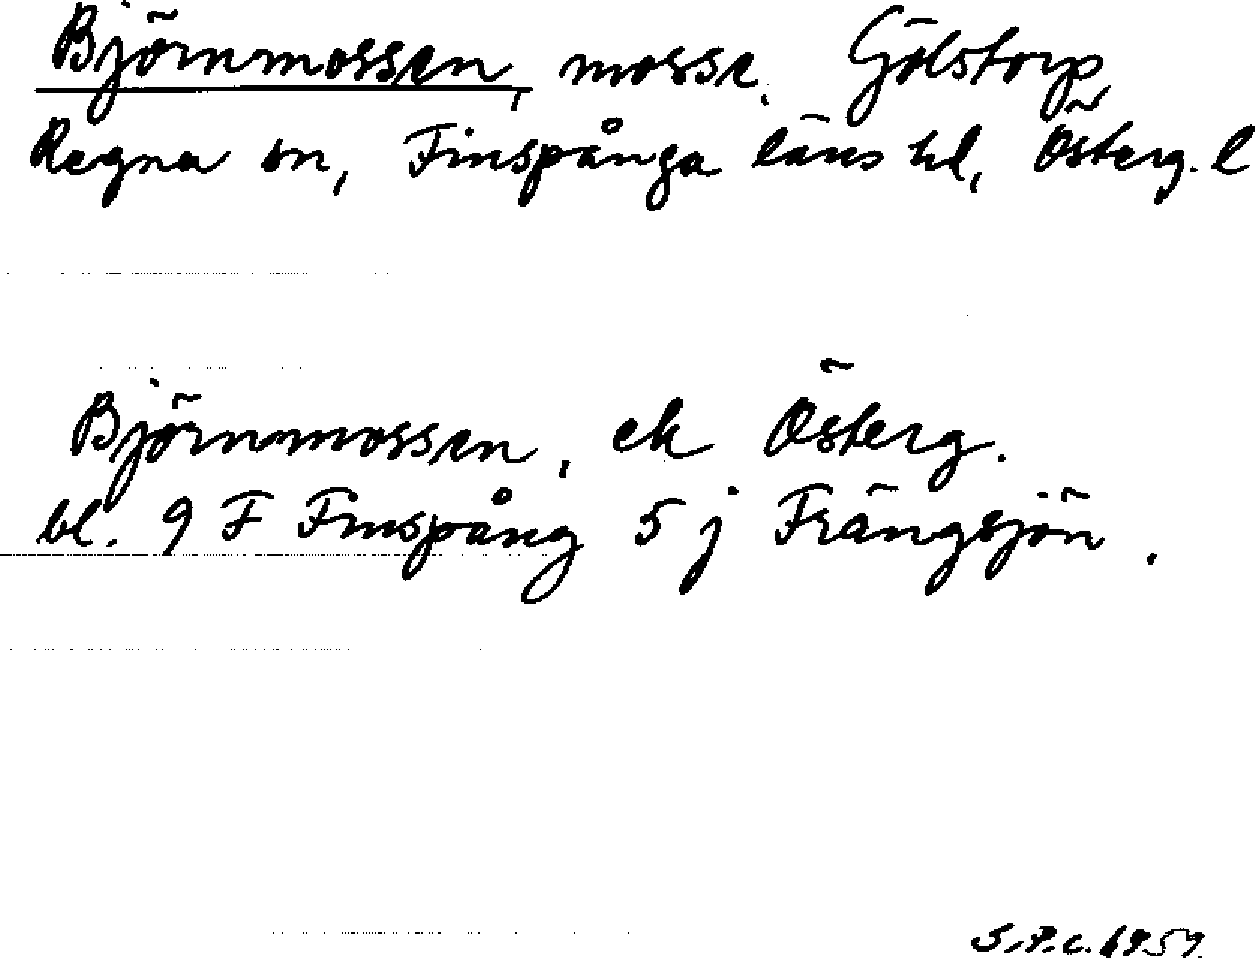 Björnmossen, mosse. Gölstorp
Regna sn, Finspånga läns hd, Österg. l
Björnmossen, ek Österg.
bl. 9 F Finspång 5 j Frängsjön.